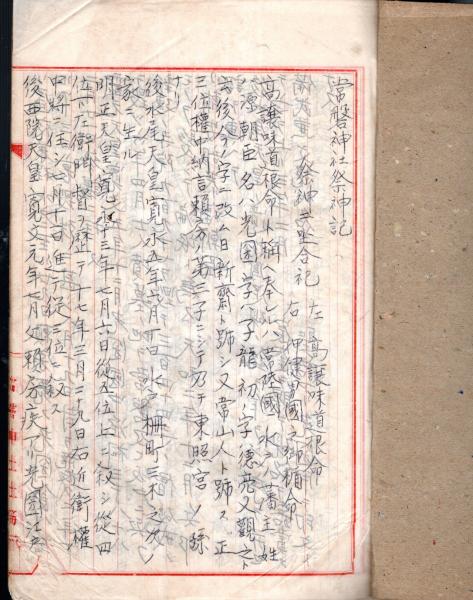 常磐神社祭神記
祭神二坐合祀 左 高譲味道根命
右 押健男國之御楯命
高譲味道根命ト稱ヘ奉レルハ常陸國水戸藩主姓
ハ源朝臣名ハ光圀字ハ子龍初ノ字德亮又觀之ト
云後今ノ字ニ改ム日新齋ト号シ又常山人ト號ス正
三位權中納言賴房ノ第三子ニシテ乃チ東照宮ノ孫
ナリ
後水尾天皇寛永五年六月十日水戸柵町三木之次ノ
家ニ生ル
明正天皇寛永十三年七月六日從五位上ニ叙シ從四
位下左衛門督ヲ歴テ十七年三月二十九日右近衛權
中將ニ任シ七月十一日進テ從三位ニ叙ス
後西院天皇寛文元年七月父賴房疾アリ光圀江戸